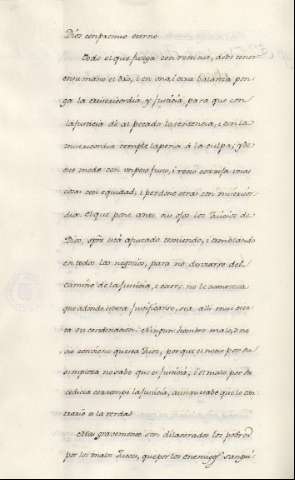 Dios con premio eterno
Todo el que juzga con rectitud, debe tener
en su mano el peso, i en una, i otra balanza pon-
ga la misericordia y Justicia, para que con
la justicia dé al pecado la sentencia, i con la
misericordia temple la pena á la culpa; y de
este modo con un peso justo, i recto corrija unas
cosas con equidad, i perdone otras con misericor-
dia. El que pone ante sus ojos los Juicios de
Dios, spre está ajustado temiendo, i temblando
en todos los negocios, para no desviarse del
camino de la Justicia, i caer; no le acontezca
que adonde espera justificarse, sea alli mas cier-
ta su condenacion. Ningun hombre malo, o ne-
cio conviene que sea Juez, por que el necio por su
simpieza no sabe que es Justicia; i el malo por su
codicia corrompe la Justicia, aunque sabe que le con-
trario es la verdad
Mas gravemente son dilacerados los pobres
por los malos Jueces, que por los enemigos sangui-